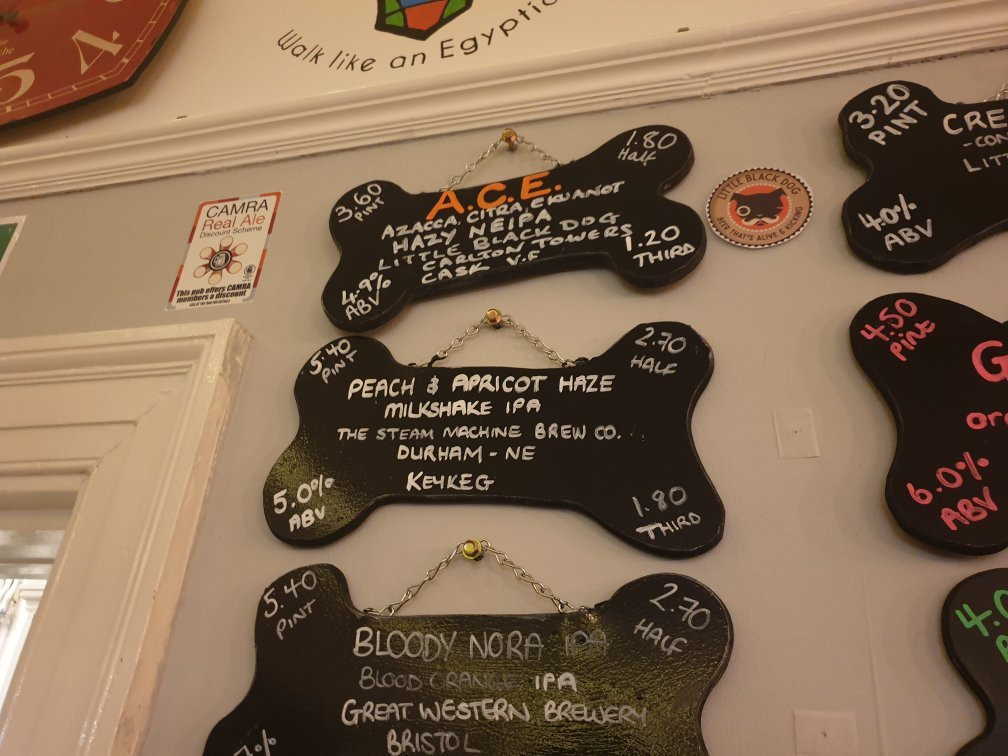 4
5
Walk like an Egyptic
CAMRA
Real Ale
Discount Scheme
This pub offers CAMRA
members a discount
3.60
PINT
1.80
Half
A.C.E.
AZACCA, CITRA, EKUANOT
HAZY NEIPA
LITTLE BLACK DOG
CARLTON TOWERS
CASK V.F
4.9%
ABV
1.20
THIRD
LITTLE BLACK DOG
BEER THAT'S ALIVE & KICKING
3.20
PINT
CRE
-CON
LIT
4.0%
ABV
5.40
PINT
2.70
HALF
PEACH & APRICOT HAZE
MILKSHAKE IPA
THE STEAM MACHINE BREW CO.
DURHAM - NE
KEYKEG
5.0%
ABV
1.80
THIRD
4.50
Pint
G
Or
6.0%
ABV
5.40
PINT
2.70
HALF
BLOODY NORA IPA
BLOOD ORANGE IPA
GREAT WESTERN BREWERY
BRISTOL
%
4.0